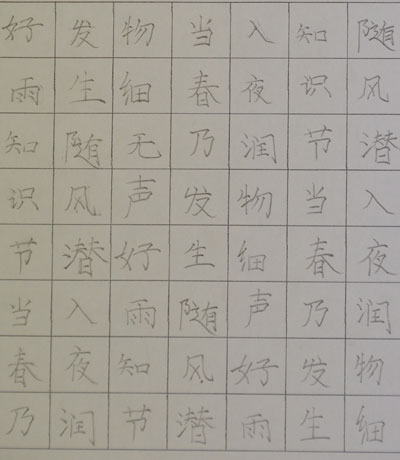 好发物当入知随
雨生细春夜识风
知随无乃润节潜
识风声发物当入
节潜好生细春夜
当入雨随声乃润
春夜知风好发物
乃润节潜雨生细